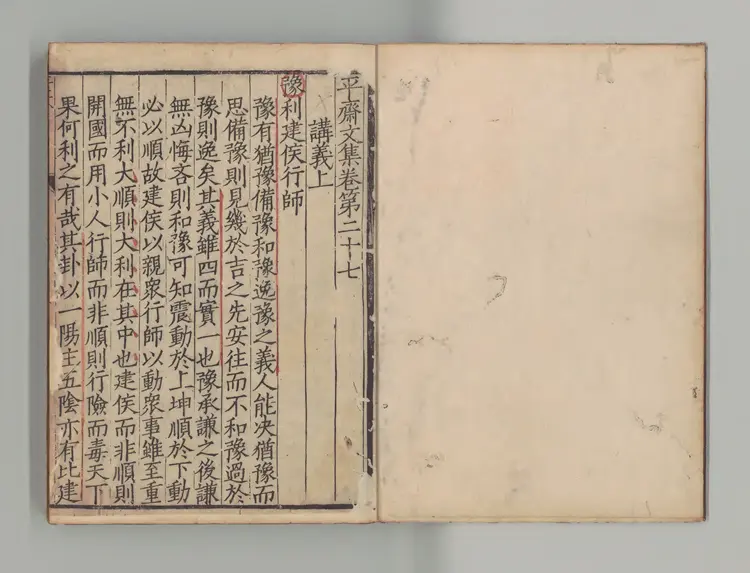 平齋文集卷第二十七
講義上
豫利建侯行師
豫有猶豫備豫和豫逸豫之義人能决猶豫而
思備豫則見幾於吉之先安往而不和豫過於
豫則逸矣其義雖四而實一也豫承謙之後謙
無凶悔吝則和豫可知震動於上坤順於下動
必以順故建侯以親衆行師以動衆事雖至重
無不利大順則大利在其中也建侯而非順則
開國而用小人行師而非順則行險而毒天下
果何利之有哉其卦以一陽主五陰亦有比建